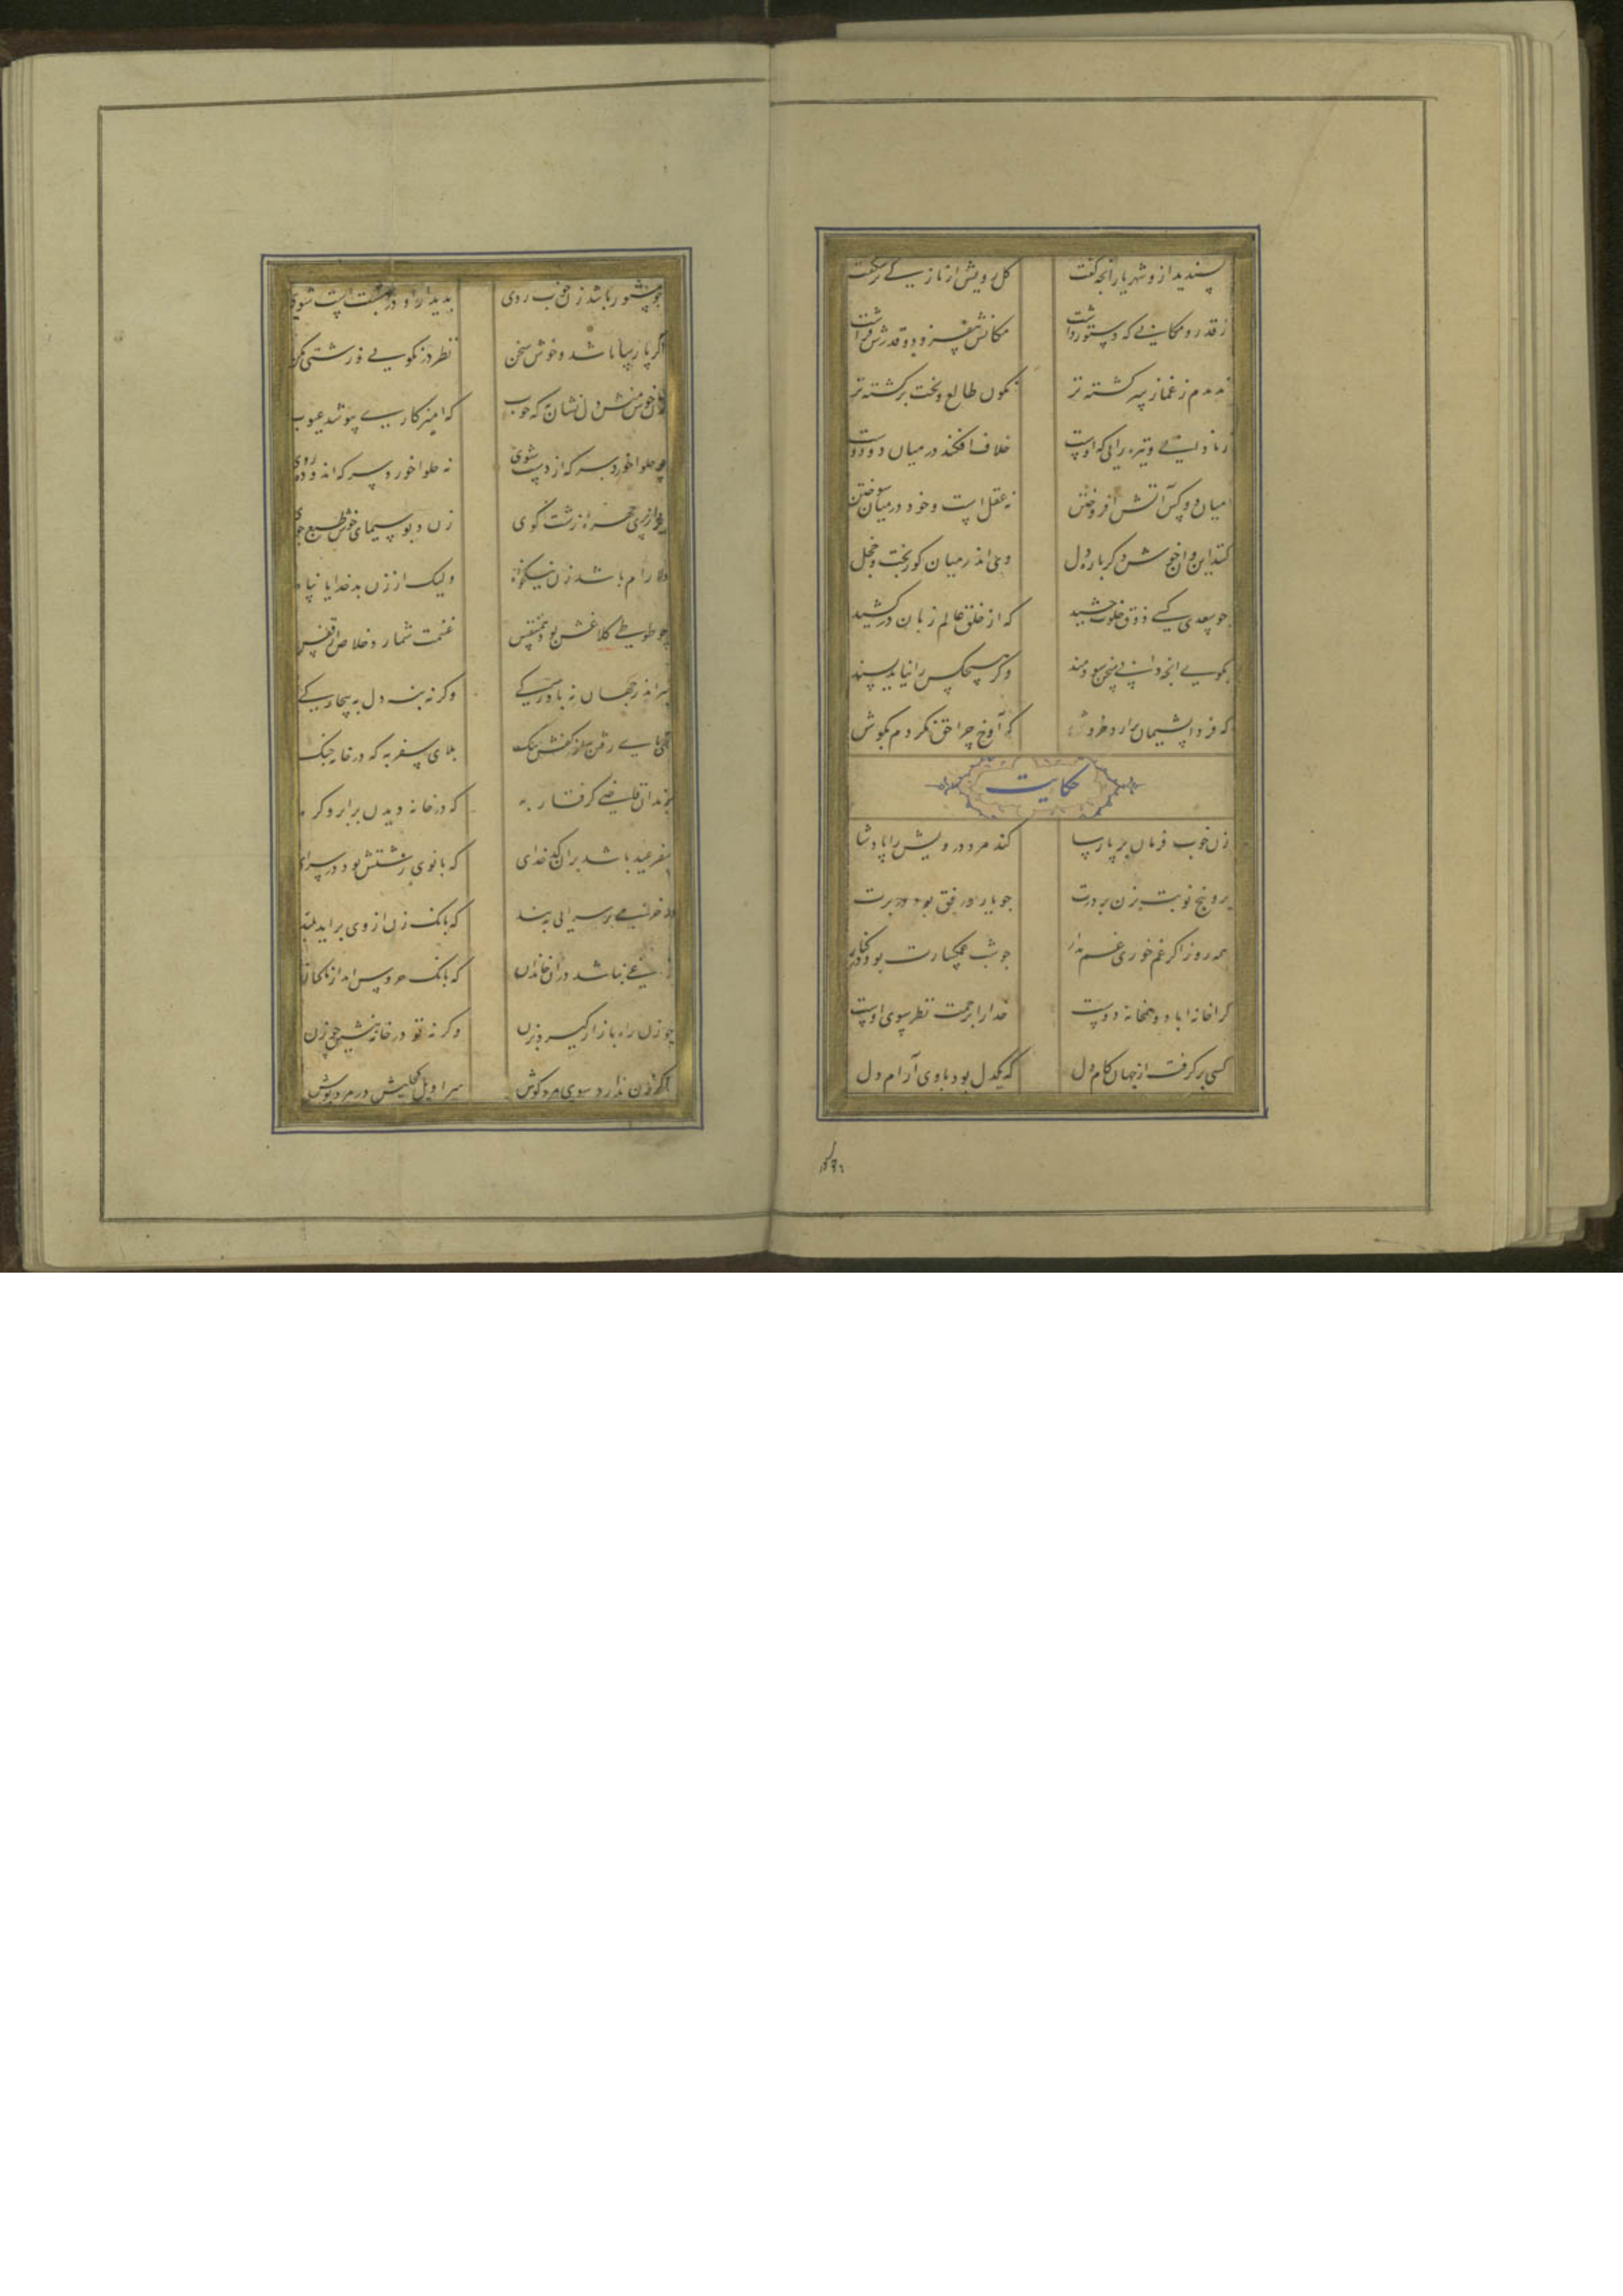 پسندید ازو شهریار آنچه گفت گل رویش از تازگی برشکفت
ز قدر و مکانی که دستور داشت مکانش بیفزود و قدرش فراشت
ندیدم ز غماز سرگشته‌تر نگون طالع و بخت برگشته‌تر
ز نادانی و تیره رایی که اوست خلاف افکند در میان دو دوست
میان دو کس آتش افروختن نه عقل است و خود در میان سوختن
کنند این و آن خوش دگر باره دل وی اندر میان کوربخت و خجل
چو سعدی کسی ذوق خلوت چشید که از خلق عالم زبان درکشید
بگوی آنچه دانی سخن سودمند وگر هیچ کس را نیاید پسند
که فردا پشیمان برآرد خروش که آوخ چرا حق نکردم بگوش
حکایت
زن خوب فرمان بر پارسا کند مرد درویش را پادشا
برو پنج نوبت بزن بر درت چو یار موافق بود در برت
همه روز اگر غم خوری غم مدار چو شب غمگسارت بود در کنار
کرا خانه آباد و همخانه دوست خدا را برحمت نظر سوی اوست
کسی برگرفت از جهان کام دل که یکدل بود با وی آرام دل
چو مستور باشد زن خوب روی بدیدار او در بهشت است شوی
اگر پارسا باشد و خوش سخن نظر در نکویی و زشتی مکن
زن خوش منش دل نشان‌تر که خوب که آمیزگاری بپوشد عیوب
چو حلوا خورد سرکه از دست شوی نه حلوا خورد سرکه اندوده روی
ببرد از پری چهره زشت گوی زن دیو سیمای خوش طبع گوی
دلارام باشد زن نیکخواه ولیک از زن بد خدایا پناه
چو طوطی کلاغش بود هم‌نفس غنیمت شمارد خلاص از قفس
سر اندر جهان نه بآوارگی وگرنه بنه دل به بیچارگی
تهی پای رفتن به از کفش تنگ بلای سفر به که در خانه جنگ
بزندان قاضی گرفتار به که در خانه دیدن بر ابرو گره
سفر عید باشد بر آن کدخدای که بانوی زشتش بود در سرای
در خرمی بر سرایی ببند که بانگ زن از وی برآید بلند
که بانگ خروس آمد از ماکیان
چو زن راه بازار گیرد بزن وگرنه تو در خانه بنشین چو زن
اگر زن ندارد سوی مرد گوش سراویل کحلیش در مرد پوش